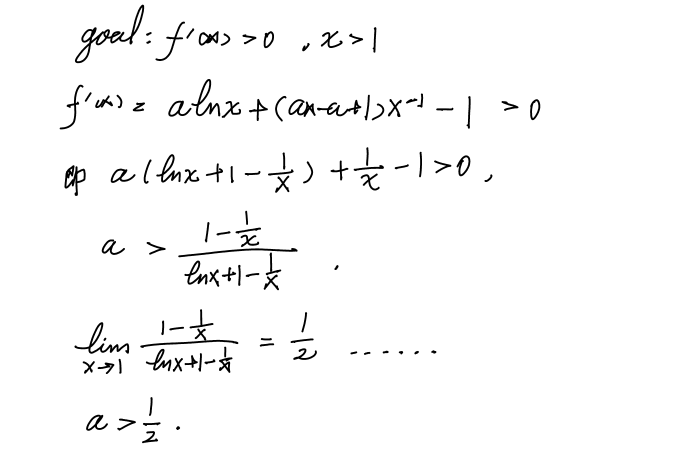 goal: f'(x) > 0 , x > 1
f'(x) = a ln x + (ax-a+1)x⁻¹ - 1 > 0
即 a(ln x + 1 - 1/x) + 1/x - 1 > 0 ,
a > (1 - 1/x)/(ln x + 1 - 1/x) .
lim x→1 (1 - 1/x)/(ln x + 1 - 1/x) = 1/2 ......
a > 1/2 .